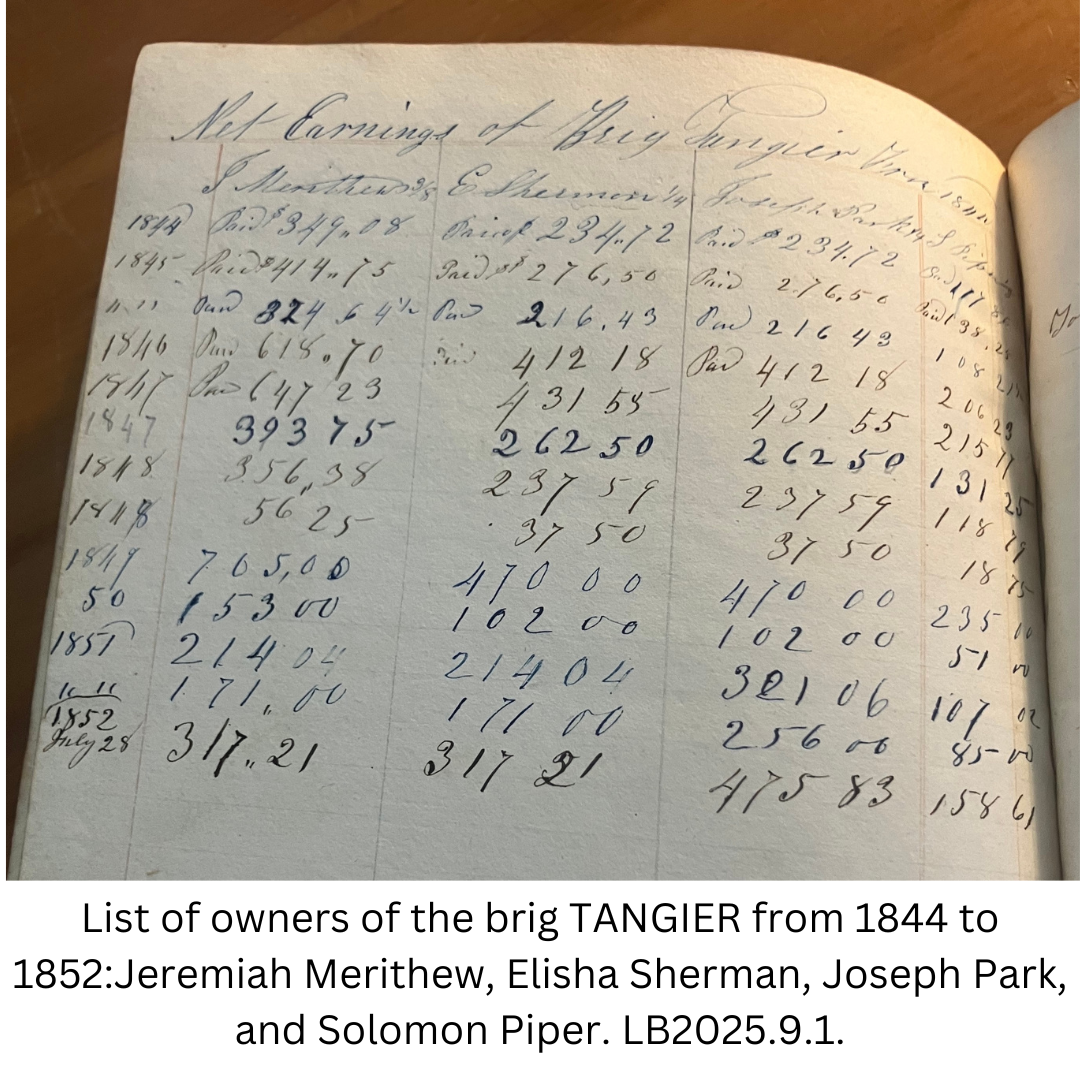 Net Earnings of Brig Tangier from 1844
J Merithew 3/8 E Sherman 1/4 Joseph Park 1/4 S Piper
1844 Paid $349.08 Paid $ 234.72 Paid $ 234.72 Paid 117
1845 Paid $414.75 Paid $ 276,50 Paid 276,50 Paid 138.25
" " Paid 324.64½ Paid 216.43 Paid 216 43 108 21
1846 Paid 618.70 Paid 412 18 Paid 412 18 206 23
1847 Paid 647 23 431 55 431 55 215 77
1847 393 75 262 50 262 50 131 25
1848 356,38 237 59 237 59 118 79
1848 56 25 37 50 37 50 18 75
1849 705,00 470 00 470 00 235 00
50 153 00 102 00 102 00 51 00
1851 214 04 214 04 321 06 107 02
" " 171.00 171 00 256 00 85 00
1852
July 28 317.21 317 21 475 83 158 61
List of owners of the brig TANGIER from 1844 to
1852:Jeremiah Merithew, Elisha Sherman, Joseph Park,
and Solomon Piper. LB2025.9.1.